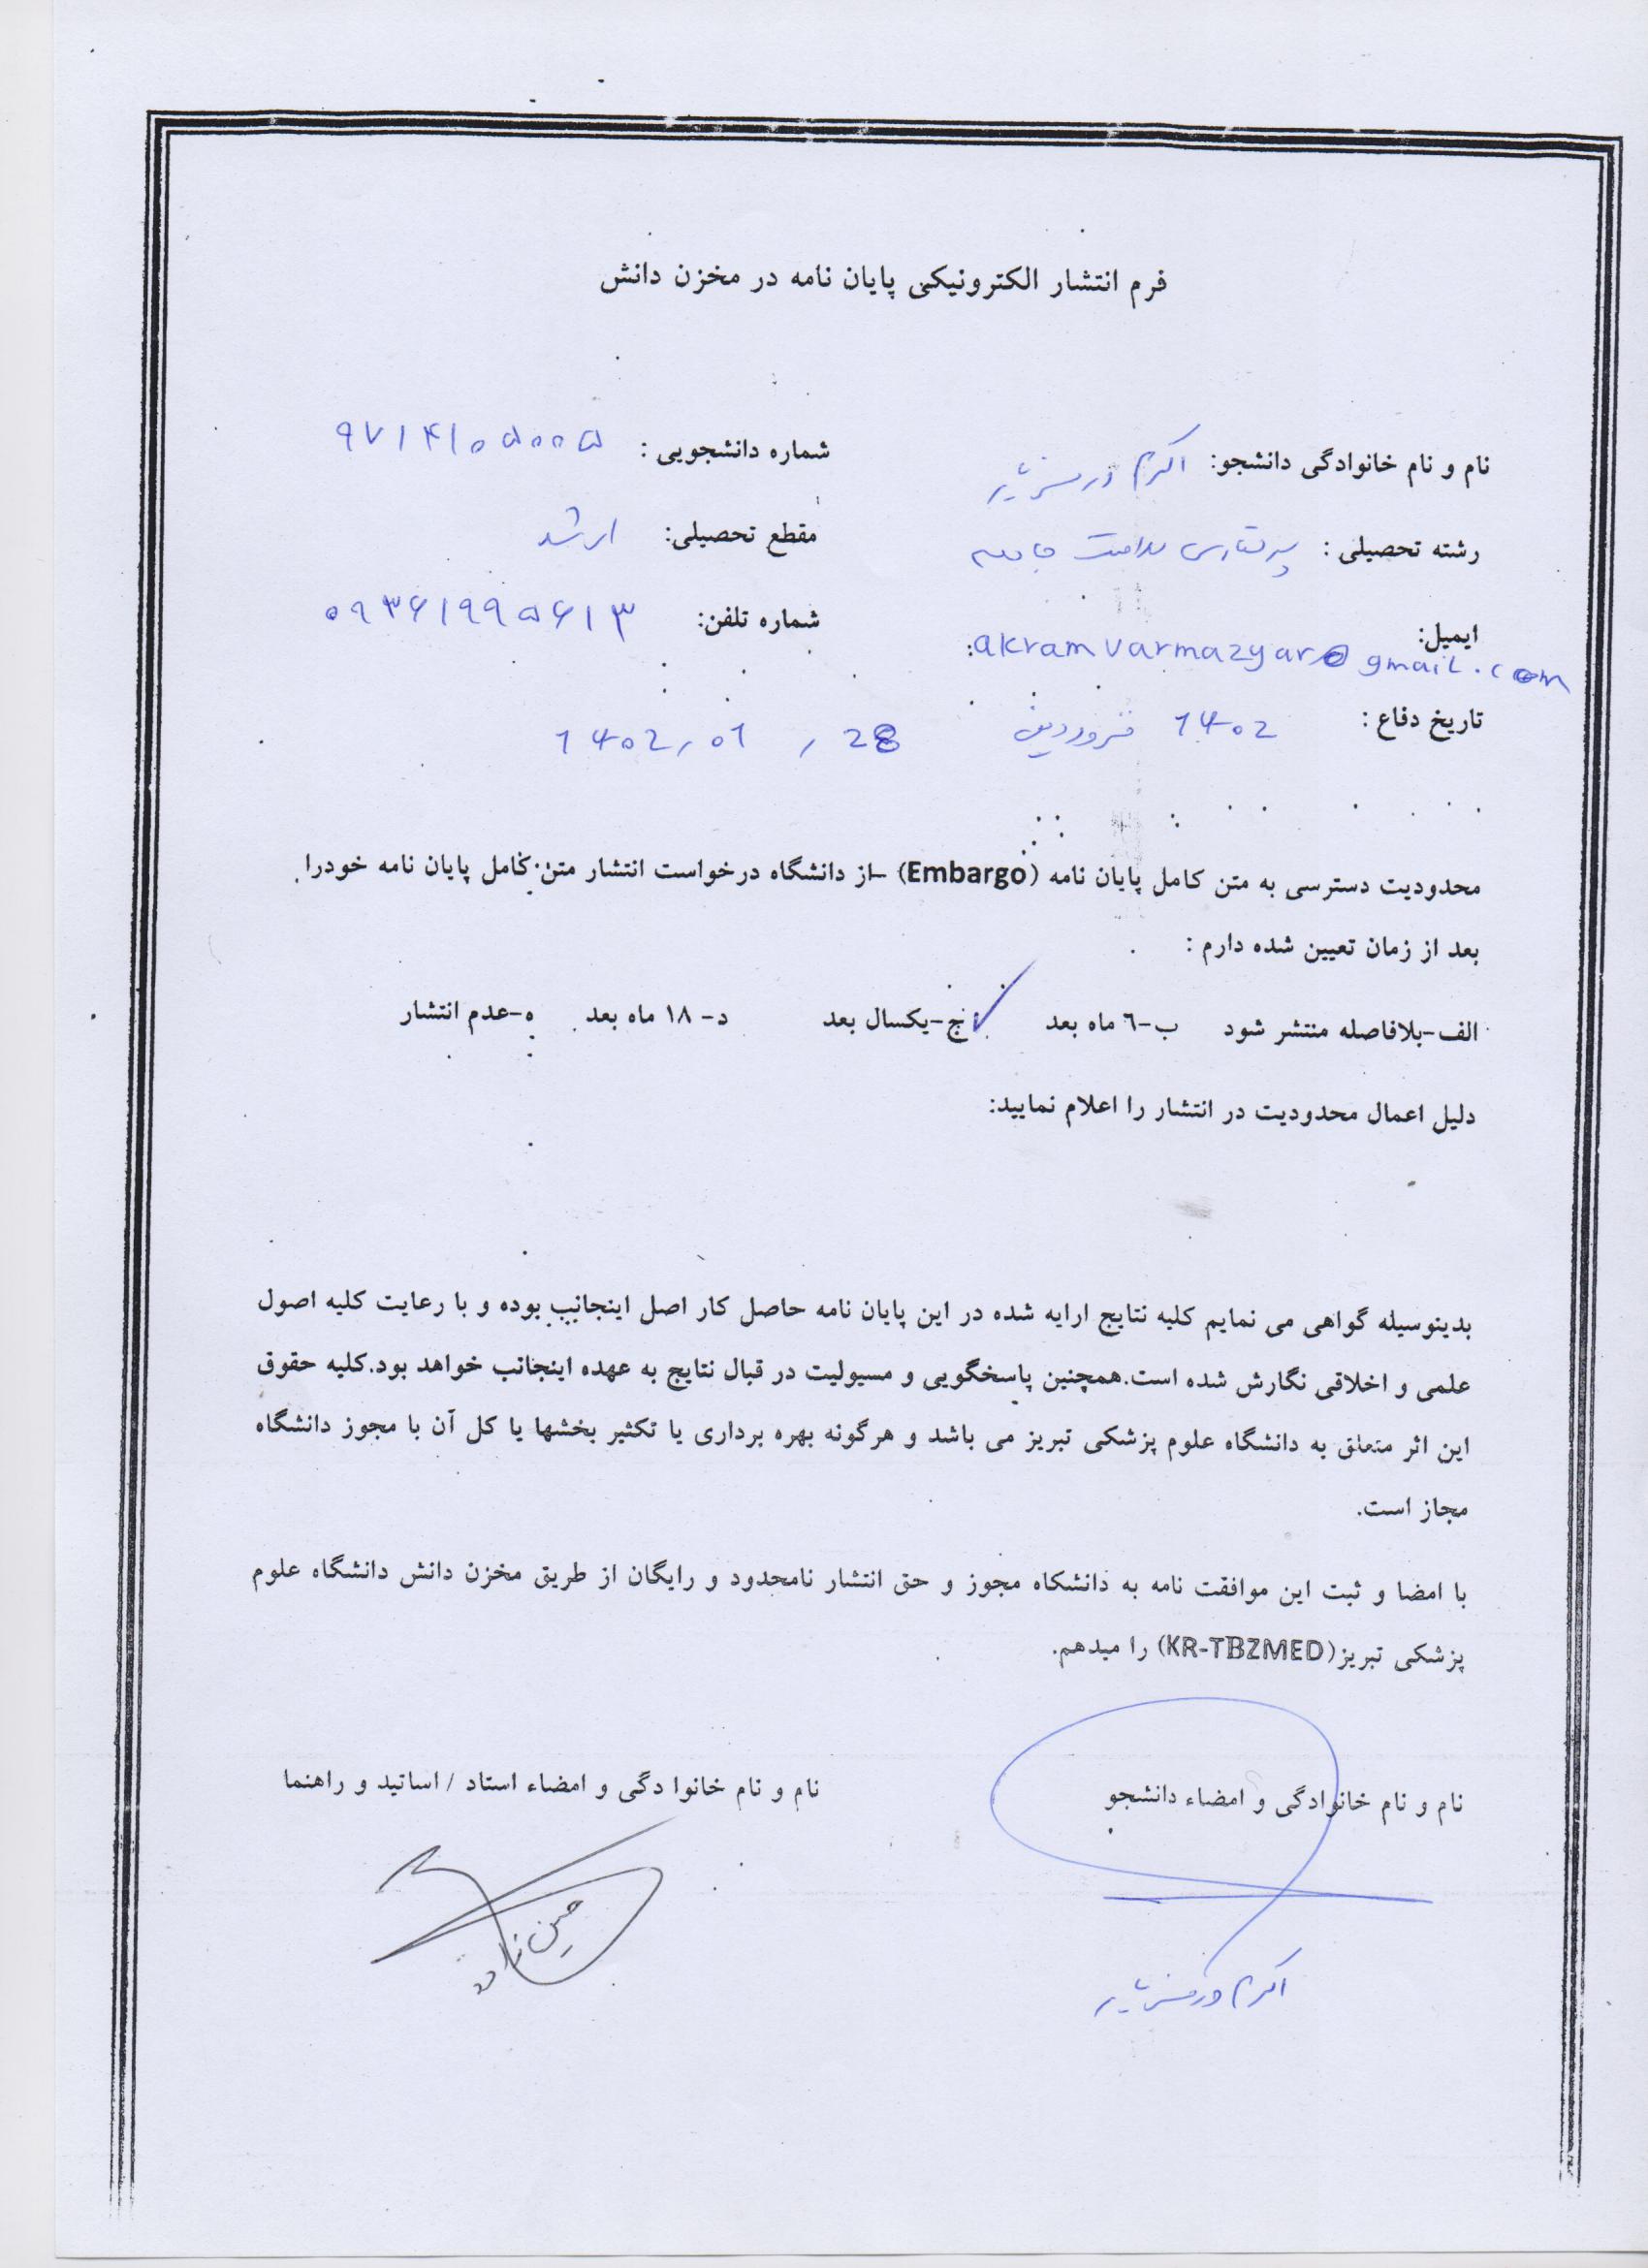 فرم انتشار الکترونیکی پایان نامه در مخزن دانش
نام و نام خانوادگی دانشجو: اکرم ورمزیار شماره دانشجویی : ۹۷۱۴۱۰۵۰۰۵
رشته تحصیلی : پرستاری سلامت جامعه مقطع تحصیلی: ارشد
ایمیل: akramvarmazyar@gmail.com شماره تلفن: ۰۹۳۶۱۹۹۵۶۱۳
تاریخ دفاع : 1402 فروردین 28 , 01 , 1402
محدودیت دسترسی به متن کامل پایان نامه (Embargo) –از دانشگاه درخواست انتشار متن کامل پایان نامه خودرا
بعد از زمان تعیین شده دارم :
الف-بلافاصله منتشر شود ب-٦ ماه بعد ✓ج-یکسال بعد د- ۱۸ ماه بعد ه-عدم انتشار
دلیل اعمال محدودیت در انتشار را اعلام نمایید:
بدینوسیله گواهی می نمایم کلیه نتایج ارایه شده در این پایان نامه حاصل کار اصل اینجانب بوده و با رعایت کلیه اصول
علمی و اخلاقی نگارش شده است.همچنین پاسخگویی و مسیولیت در قبال نتایج به عهده اینجانب خواهد بود.کلیه حقوق
این اثر متعلق به دانشگاه علوم پزشکی تبریز می باشد و هرگونه بهره برداری یا تکثیر بخشها یا کل آن با مجوز دانشگاه
مجاز است.
با امضا و ثبت این موافقت نامه به دانشکاه مجوز و حق انتشار نامحدود و رایگان از طریق مخزن دانش دانشگاه علوم
پزشکی تبریز(KR-TBZMED) را میدهم.
نام و نام خانوادگی و امضاء دانشجو نام و نام خانوا دگی و امضاء استاد / اساتید و راهنما
حسین زاده
اکرم ورمزیار